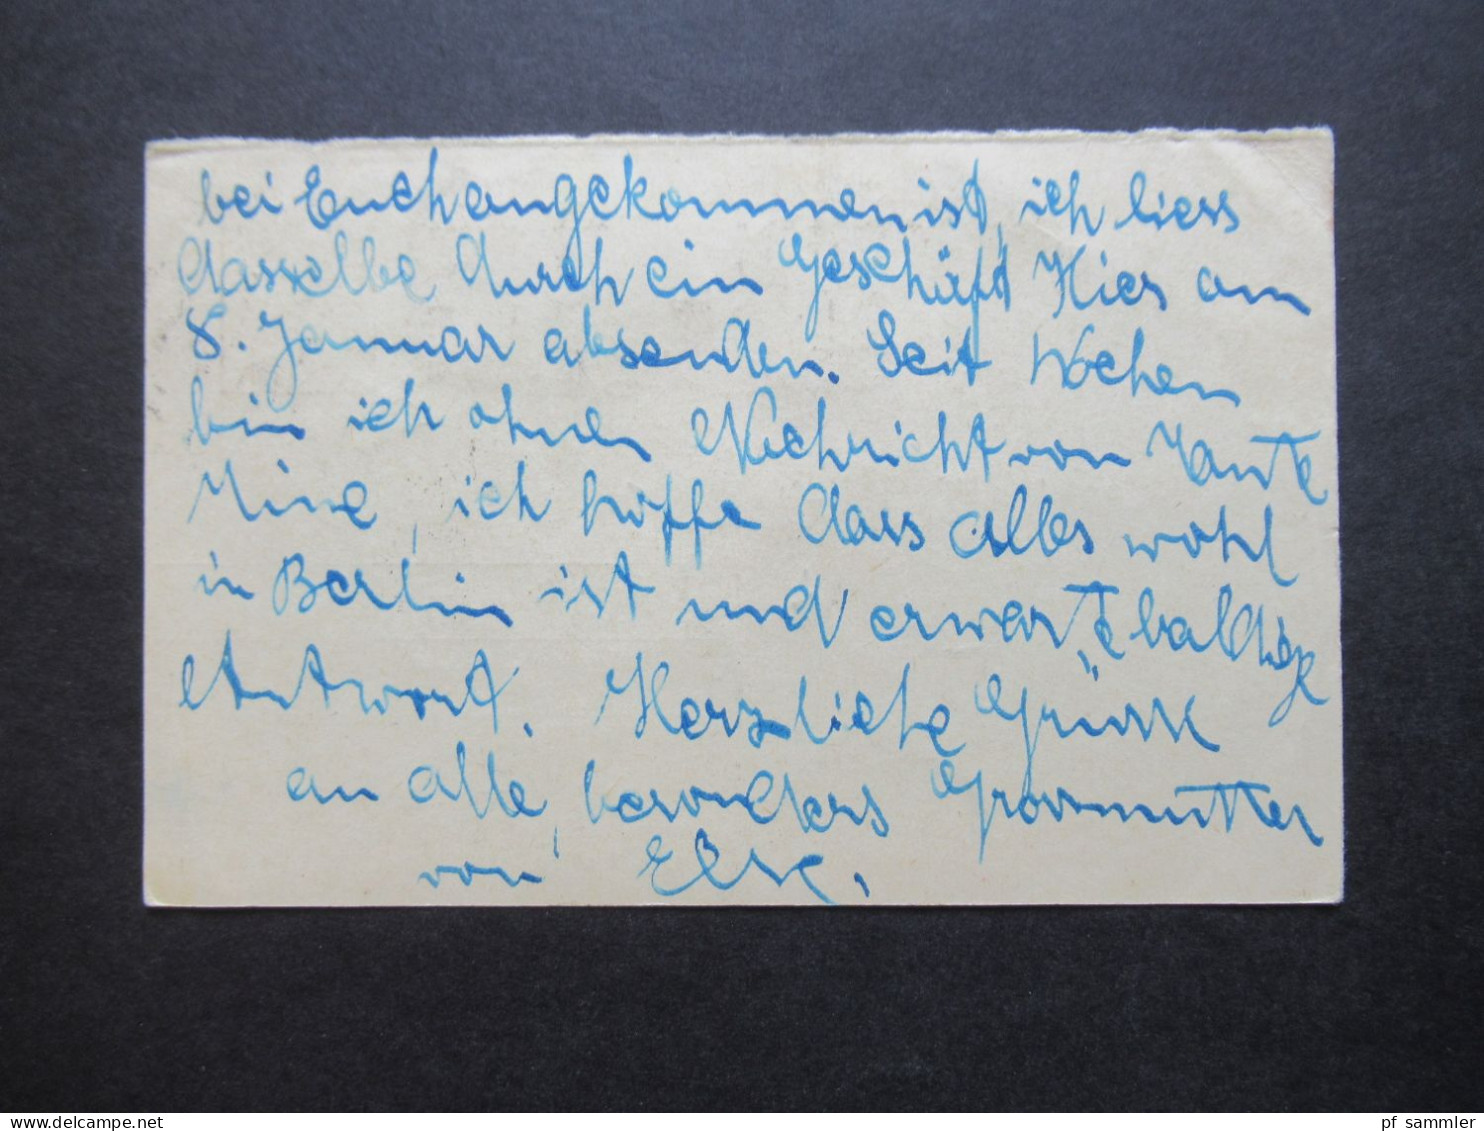 bei Euch angekommen ist, ich liess
dasselbe durch ein Geschäft Hier am
8. Januar absenden. Seit Wochen
bin ich ohne Nachricht von Tante
Mine, ich hoffe dass alles wohl
in Berlin ist und erwarte baldige
Antwort. Herzliche Grüsse
an alle, besonders Grossmutter
von Else.
delcampe.net
pf_sammler